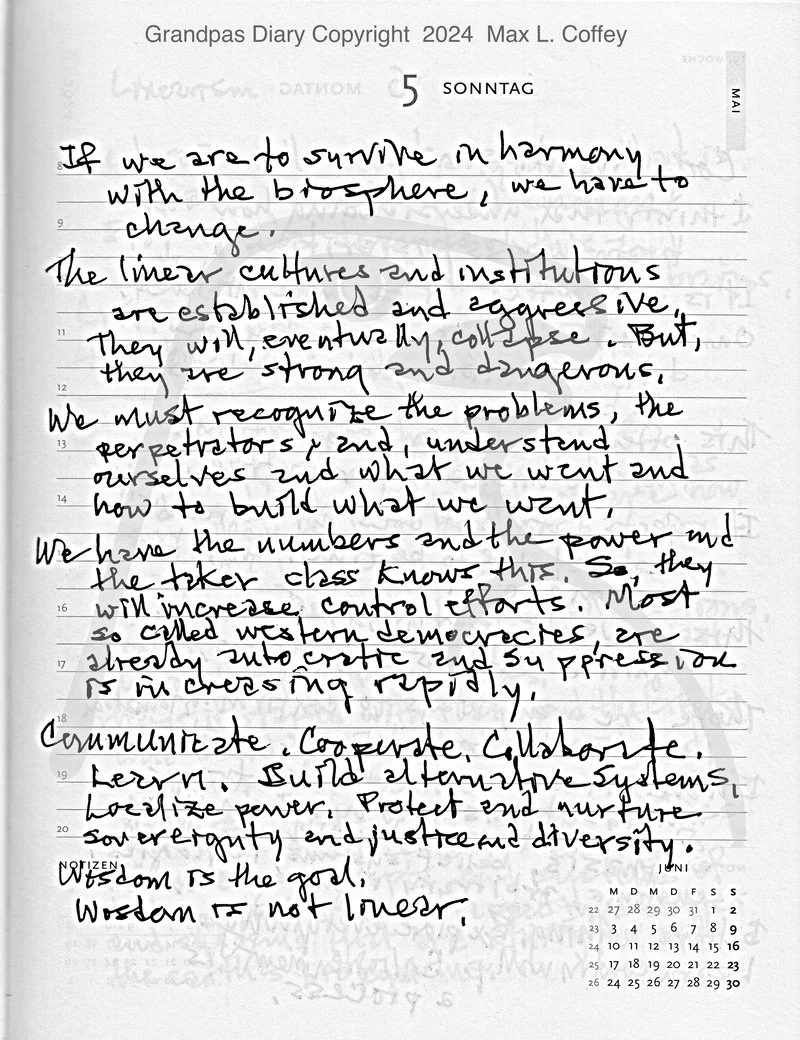 Grandpas Diary Copyright 2024 Max L. Coffey
5 SONNTAG
MAI
If we are to survive in harmony
with the biosphere, we have to
change.
The linear cultures and institutions
are established and aggressive.
They will, eventually, collapse. But,
they are strong and dangerous.
We must recognize the problems, the
perpetrators, and, understand
ourselves and what we want and
how to build what we want.
We have the numbers and the power and
the taker class knows this. So, they
will increase control efforts. Most
so called western democracies, are
already autocratic and suppression
is increasing rapidly.
Communicate. Cooperate. Collaborate.
Learn. Build alternative systems.
Localize power. Protect and nurture
sovereignty and justice and diversity.
Wisdom is the goal.
Wisdom is not linear.
8
9
11
12
13
14
16
17
18
19
20
NOTIZEN
JUNI
M D M D F S S
22 27 28 29 30 31 1 2
23 3 4 5 6 7 8 9
24 10 11 12 13 14 15 16
25 17 18 19 20 21 22 23
26 24 25 26 27 28 29 30